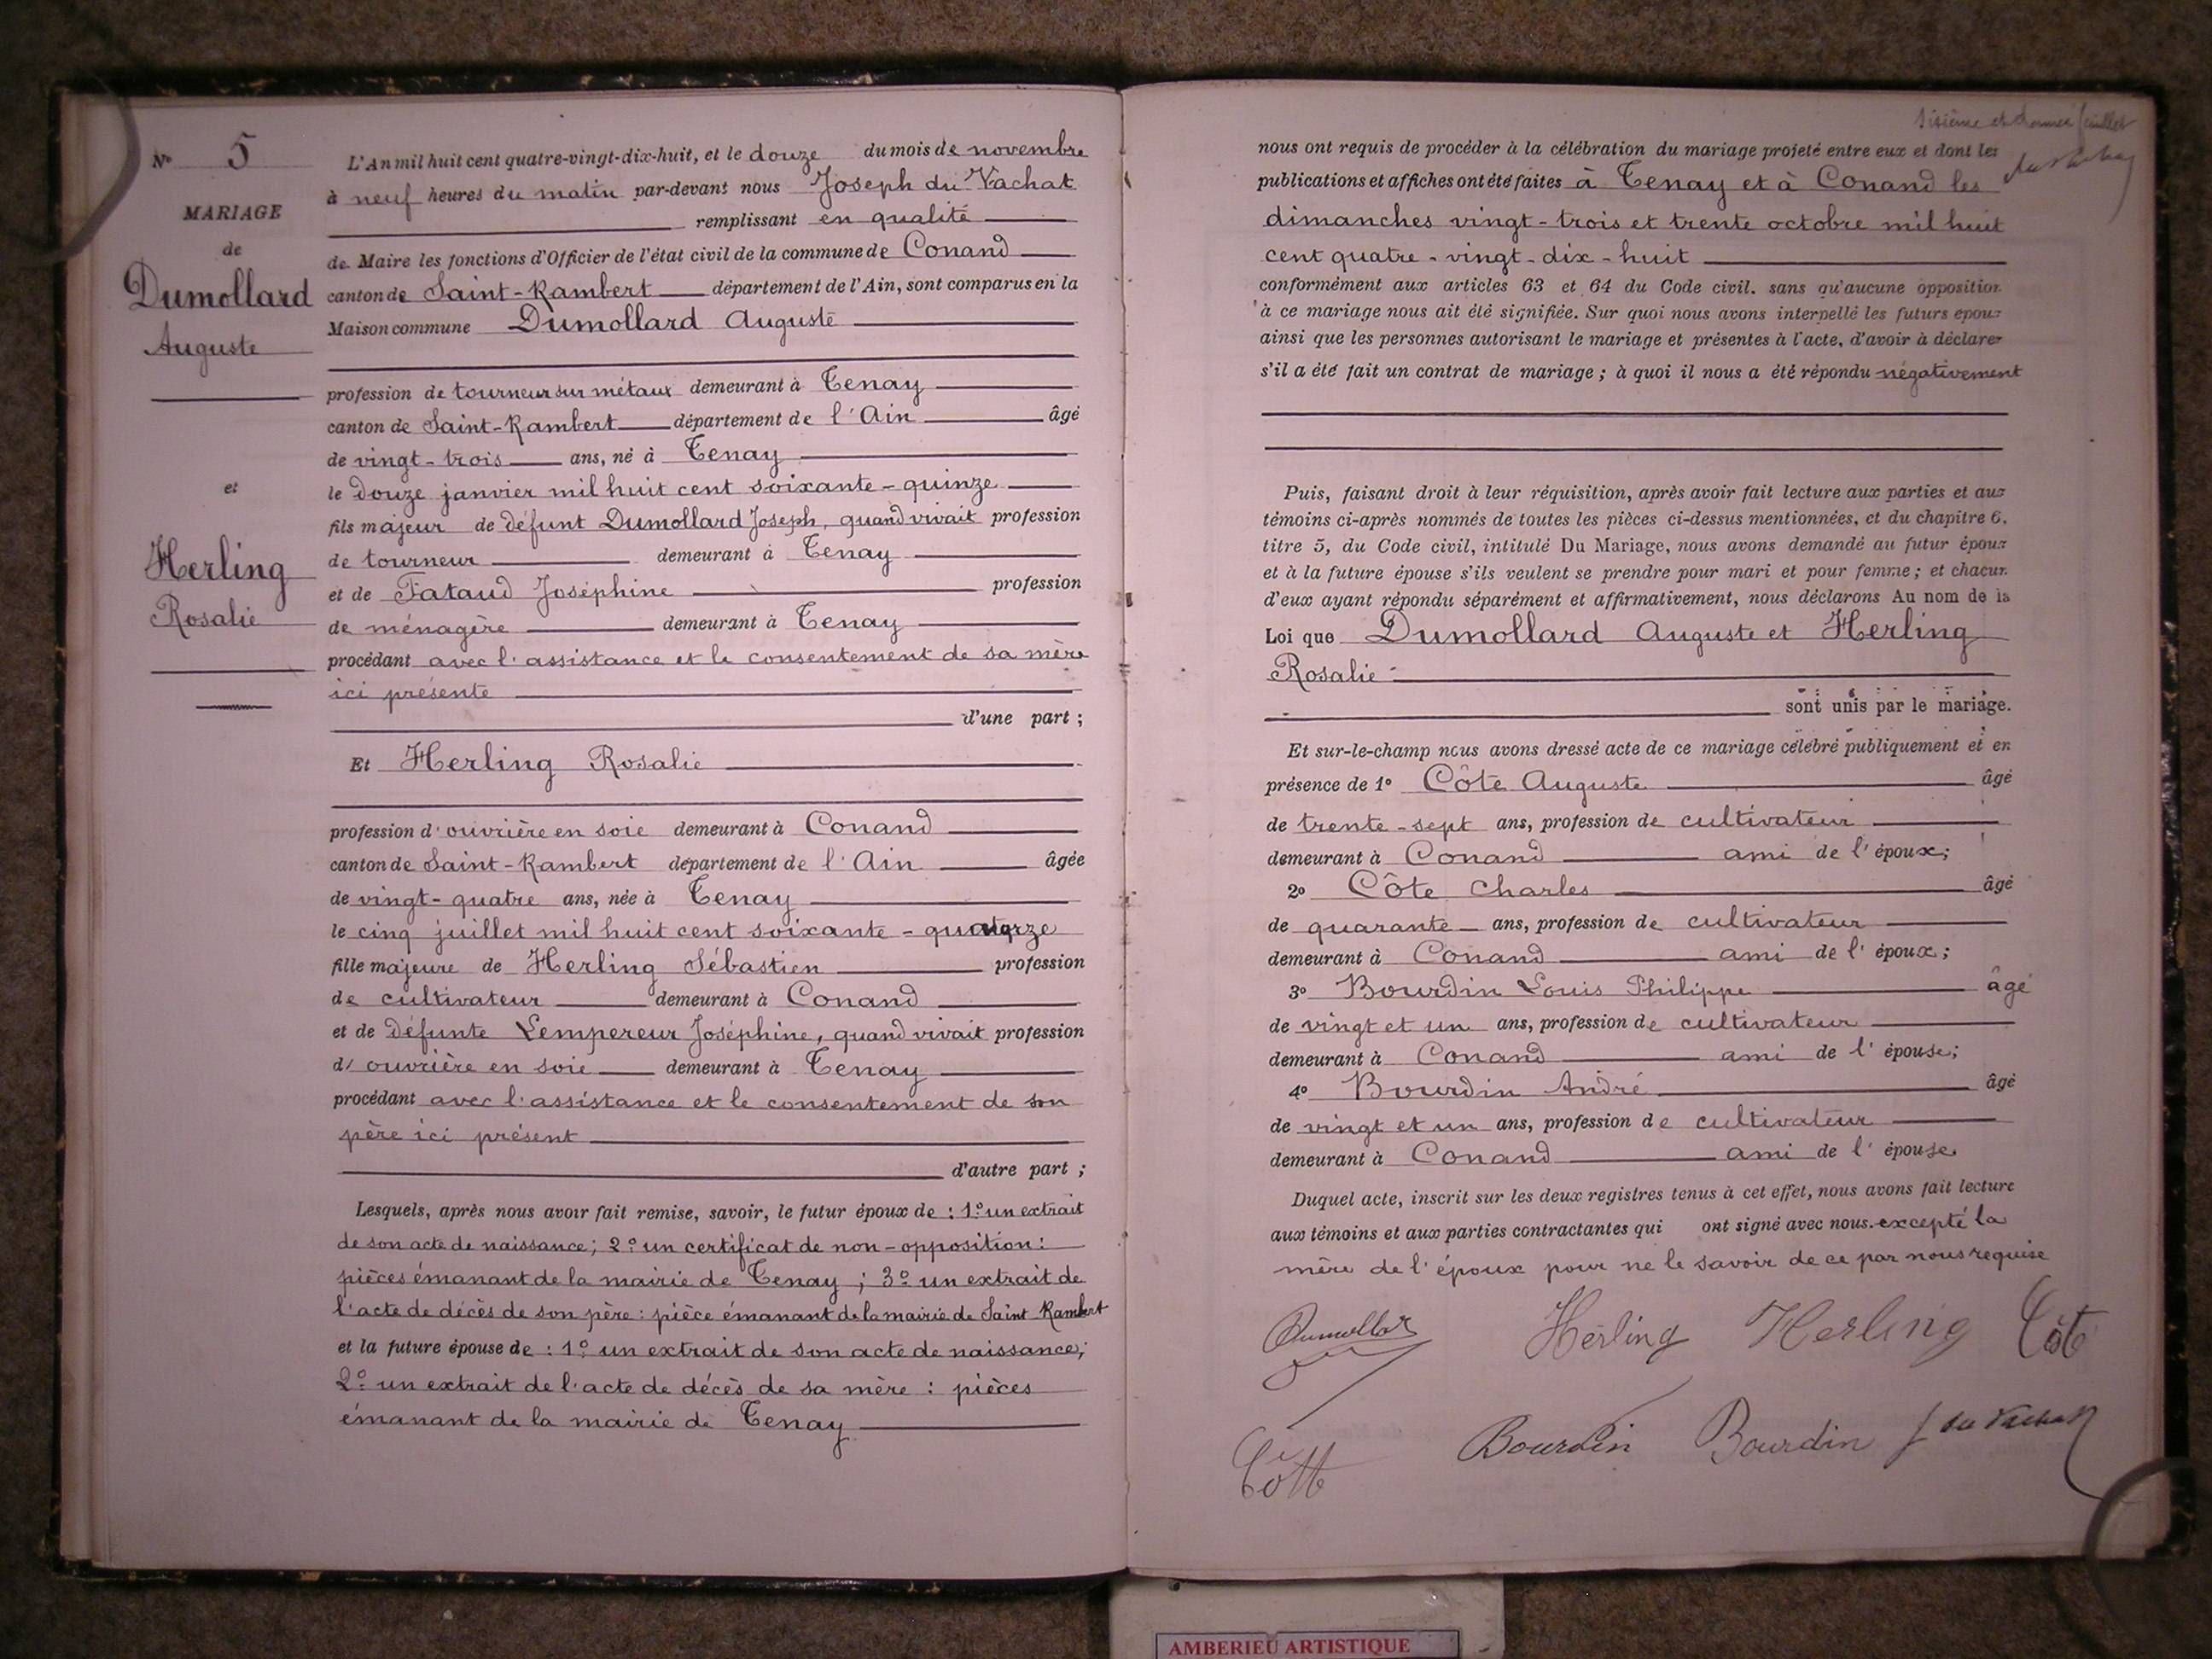 N° 5
MARIAGE
de
Dumollard
Auguste
et
Herling
Rosalie
L'An mil huit cent quatre-vingt-dix-huit, et le douze du mois de novembre
à neuf heures du matin par-devant nous Joseph du Vachat
remplissant en qualité
de Maire les fonctions d'Officier de l'état civil de la commune de Conand
canton de Saint-Rambert département de l'Ain, sont comparus en la
Maison commune Dumollard Auguste
profession de tourneur sur métaux demeurant à Tenay
canton de Saint-Rambert département de l'Ain âgé
de vingt-trois ans, né à Tenay
le douze janvier mil huit cent soixante-quinze
fils majeur de défunt Dumollard Joseph, quand vivait profession
de tourneur demeurant à Tenay
et de Fataud Joséphine profession
de ménagère demeurant à Tenay
procédant avec l'assistance et le consentement de sa mère
ici présente
d'une part ;
Et Herling Rosalie
profession d'ouvrière en soie demeurant à Conand
canton de Saint-Rambert département de l'Ain âgée
de vingt-quatre ans, née à Tenay
le cinq juillet mil huit cent soixante-quatorze
fille majeure de Herling Sébastien profession
de cultivateur demeurant à Conand
et de défunte Lempereur Joséphine, quand vivait profession
d'ouvrière en soie demeurant à Tenay
procédant avec l'assistance et le consentement de son
père ici présent
d'autre part ;
Lesquels, après nous avoir fait remise, savoir, le futur époux de : 1° un extrait
de son acte de naissance ; 2° un certificat de non-opposition :
pièces émanant de la mairie de Tenay ; 3° un extrait de
l'acte de décès de son père : pièce émanant de la mairie de Saint-Rambert
et la future épouse de : 1° un extrait de son acte de naissance ;
2° un extrait de l'acte de décès de sa mère : pièces
émanant de la mairie de Tenay
Sixième et dernier feuillet
du Vachat
nous ont requis de procéder à la célébration du mariage projeté entre eux et dont les
publications et affiches ont été faites à Tenay et à Conand les
dimanches vingt-trois et trente octobre mil huit
cent quatre-vingt-dix-huit
conformément aux articles 63 et 64 du Code civil. sans qu'aucune opposition
à ce mariage nous ait été signifiée. Sur quoi nous avons interpellé les futurs époux
ainsi que les personnes autorisant le mariage et présentes à l'acte, d'avoir à déclarer
s'il a été fait un contrat de mariage ; à quoi il nous a été répondu négativement
Puis, faisant droit à leur réquisition, après avoir fait lecture aux parties et aux
témoins ci-après nommés de toutes les pièces ci-dessus mentionnées, et du chapitre 6,
titre 5, du Code civil, intitulé Du Mariage, nous avons demandé au futur époux
et à la future épouse s'ils veulent se prendre pour mari et pour femme ; et chacun
d'eux ayant répondu séparément et affirmativement, nous déclarons Au nom de la
Loi que Dumollard Auguste et Herling
Rosalie
sont unis par le mariage.
Et sur-le-champ nous avons dressé acte de ce mariage célébré publiquement et en
présence de 1° Côte Auguste âgé
de trente-sept ans, profession de cultivateur
demeurant à Conand ami de l'époux ;
2° Côte Charles âgé
de quarante ans, profession de cultivateur
demeurant à Conand ami de l'époux ;
3° Bourdin Louis Philippe âgé
de vingt et un ans, profession de cultivateur
demeurant à Conand ami de l'épouse ;
4° Bourdin André âgé
de vingt et un ans, profession de cultivateur
demeurant à Conand ami de l'épouse
Duquel acte, inscrit sur les deux registres tenus à cet effet, nous avons fait lecture
aux témoins et aux parties contractantes qui ont signé avec nous. excepté la
mère de l'époux pour ne le savoir de ce par nous requise
Dumollard Herling Herling Côte
Côte Bourdin Bourdin J du Vachat
AMBERIEU ARTISTIQUE